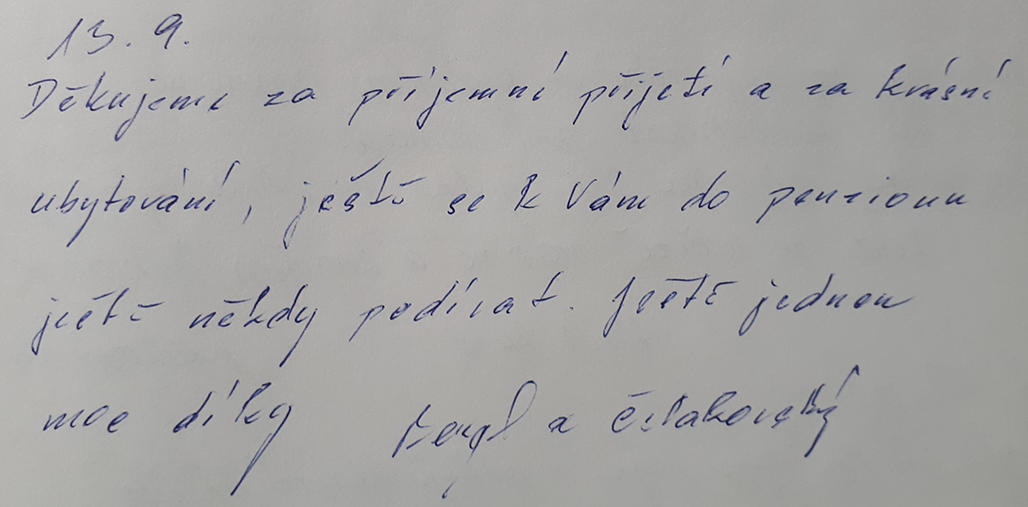 13. 9.
Děkujeme za příjemné přijetí a za krásné
ubytování, ještě se k Vám do penzionu
ještě někdy podívat. Ještě jednou
moc díky a